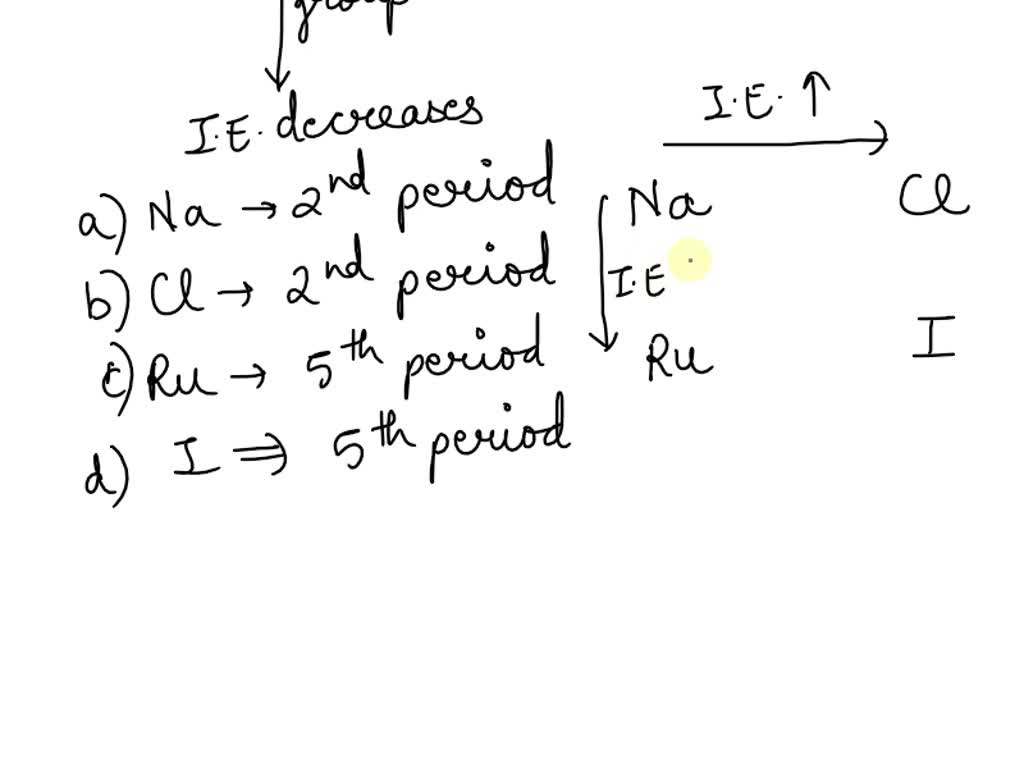 group
I.E. decreases
a) Na → 2nd period
b) Cl → 2nd period
c) Ru → 5th period
d) I ⇒ 5th period
I.E. ↑
Na Cl
I.E
Ru I